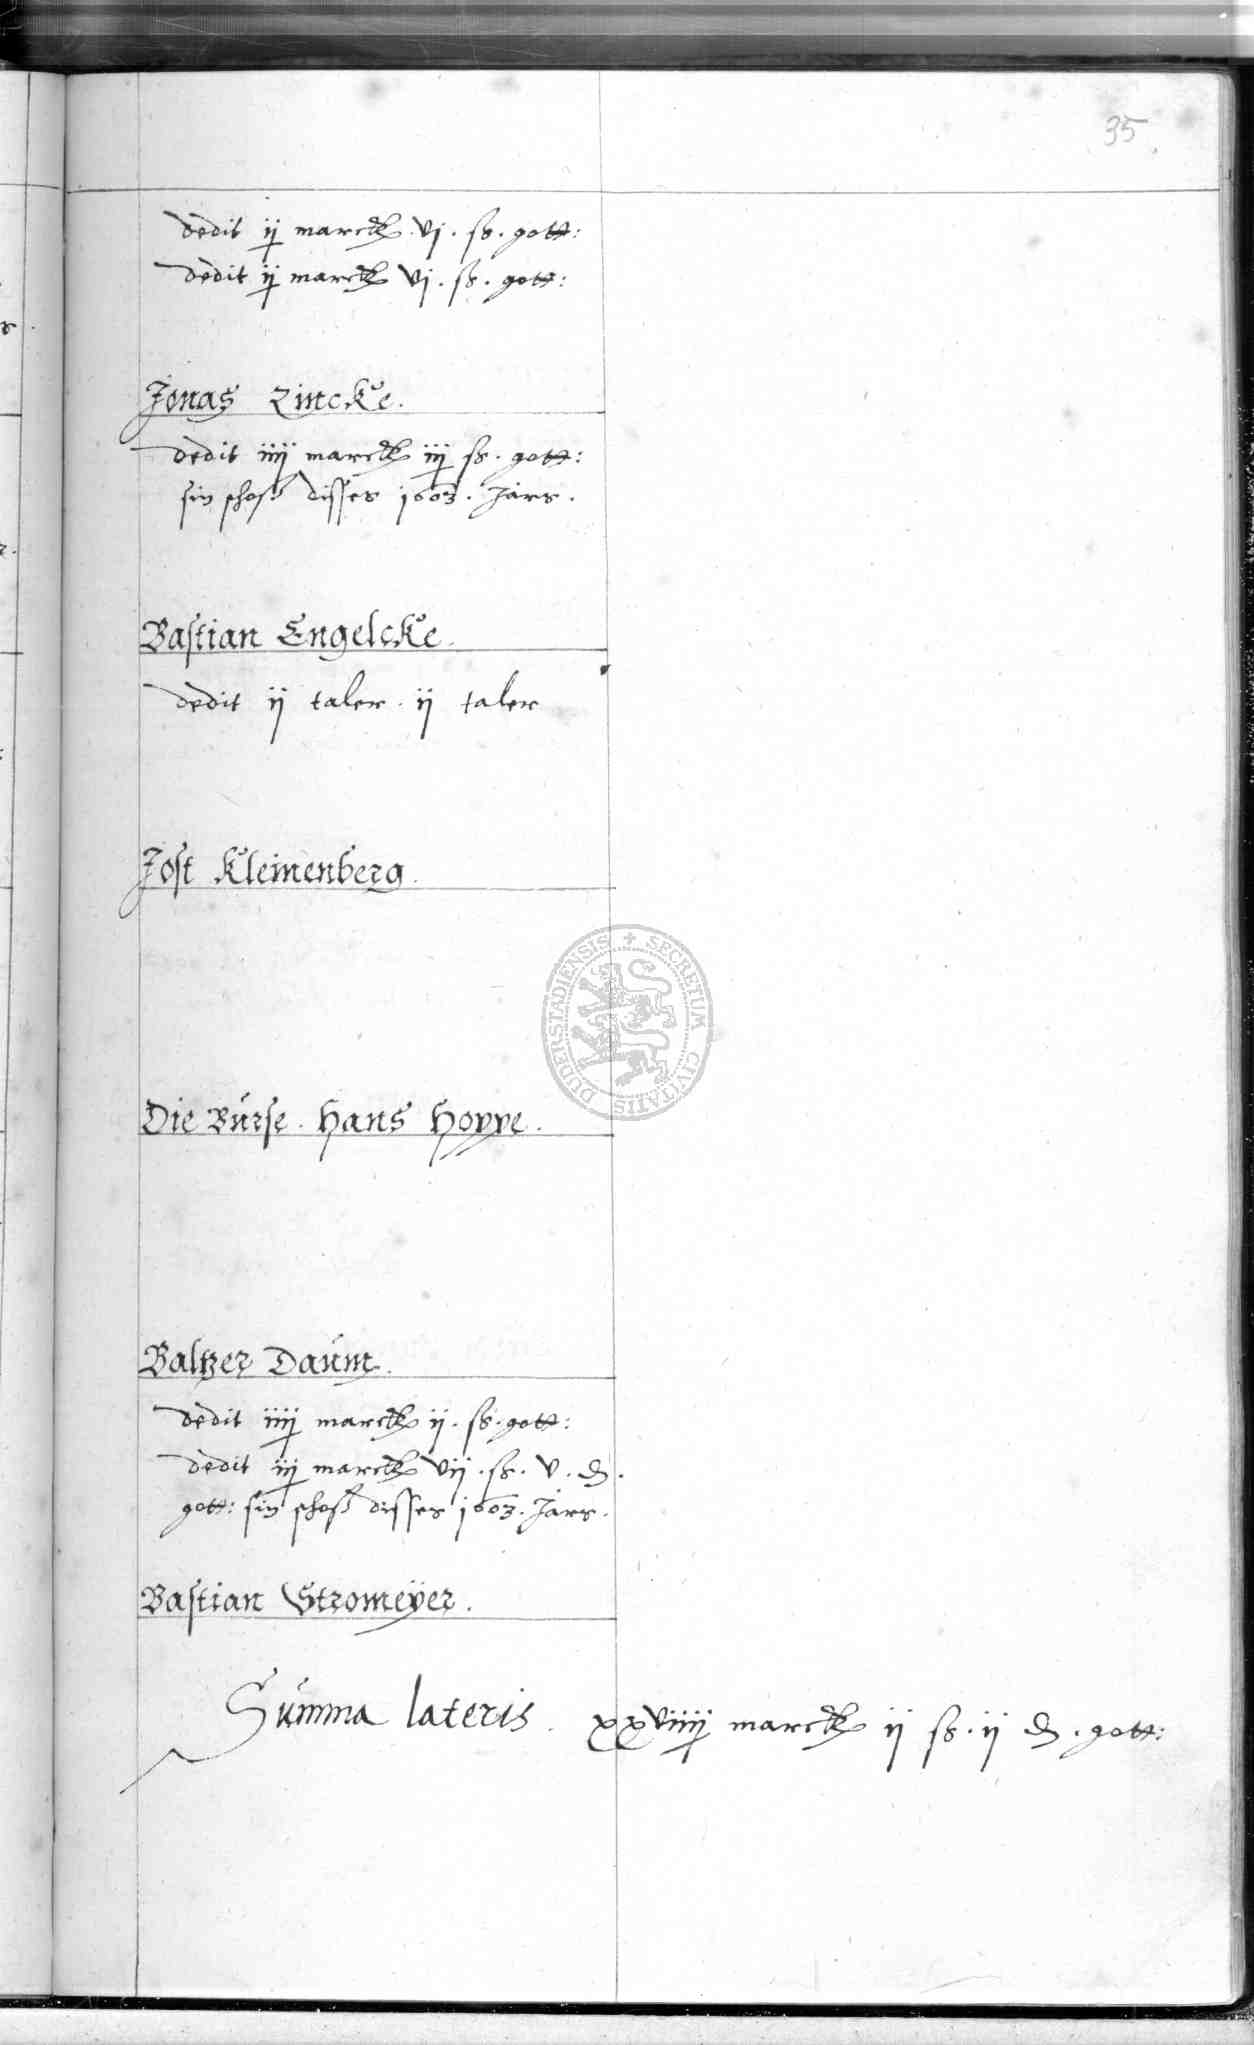 35
dedit ij marck. vj. ß. gott:
dedit ij marck vj. ß. gott:
Jonas Zincke.
dedit iiij marck iij ß. gott:
sin schoß disses 1603. Jars.
Bastian Engelcke.
dedit ij taler. ij taler
Jost Kleinenberg.
Die Burse. Hans Hoppe.
DUDERSTADIENSIS + SECRETUM CIVITATIS
Baltzer Daum.
dedit iiij marck ij. ß. gott:
dedit iij marck vij. ß. v. ₰.
gott: sin schoß disses 1603. Jars.
Bastian Stromeÿer.
Summa lateris. xxviiij marck ij ß. ij ₰. gott: